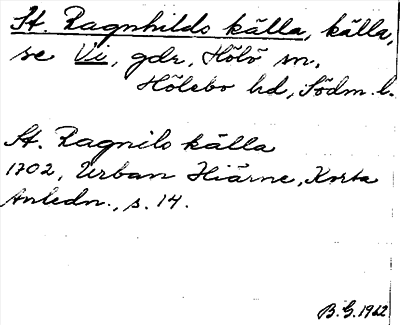 St. Ragnhilds källa, källa,
se Vi, gdr, Hölö sn,
Hölebo hd, Södm. l.
St. Ragnils källa
1702, Urban Hiärne, Korta
Anledn., s. 14.
B.G. 1962